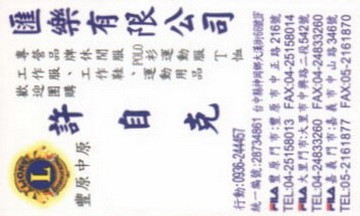 匯樂有限公司
專營品牌休閒服、POLO衫、運動服、T恤
工作服、工作鞋、運動用品
歡迎團購
許自克
豐原中原
LIONS
L
行動:0936-244457
統一編號:28734861 台中縣神岡鄉大漢街68號2F
FILA 豐原門市:豐原市中正路216號
TEL:04-25158013 FAX:04-25158014
FILA 大里門市:大里市中興路二段542號
TEL:04-24833260 FAX:04-24833260
FILA 嘉義門市:嘉義市中山路346號
TEL:05-2161877 FAX:05-2161870